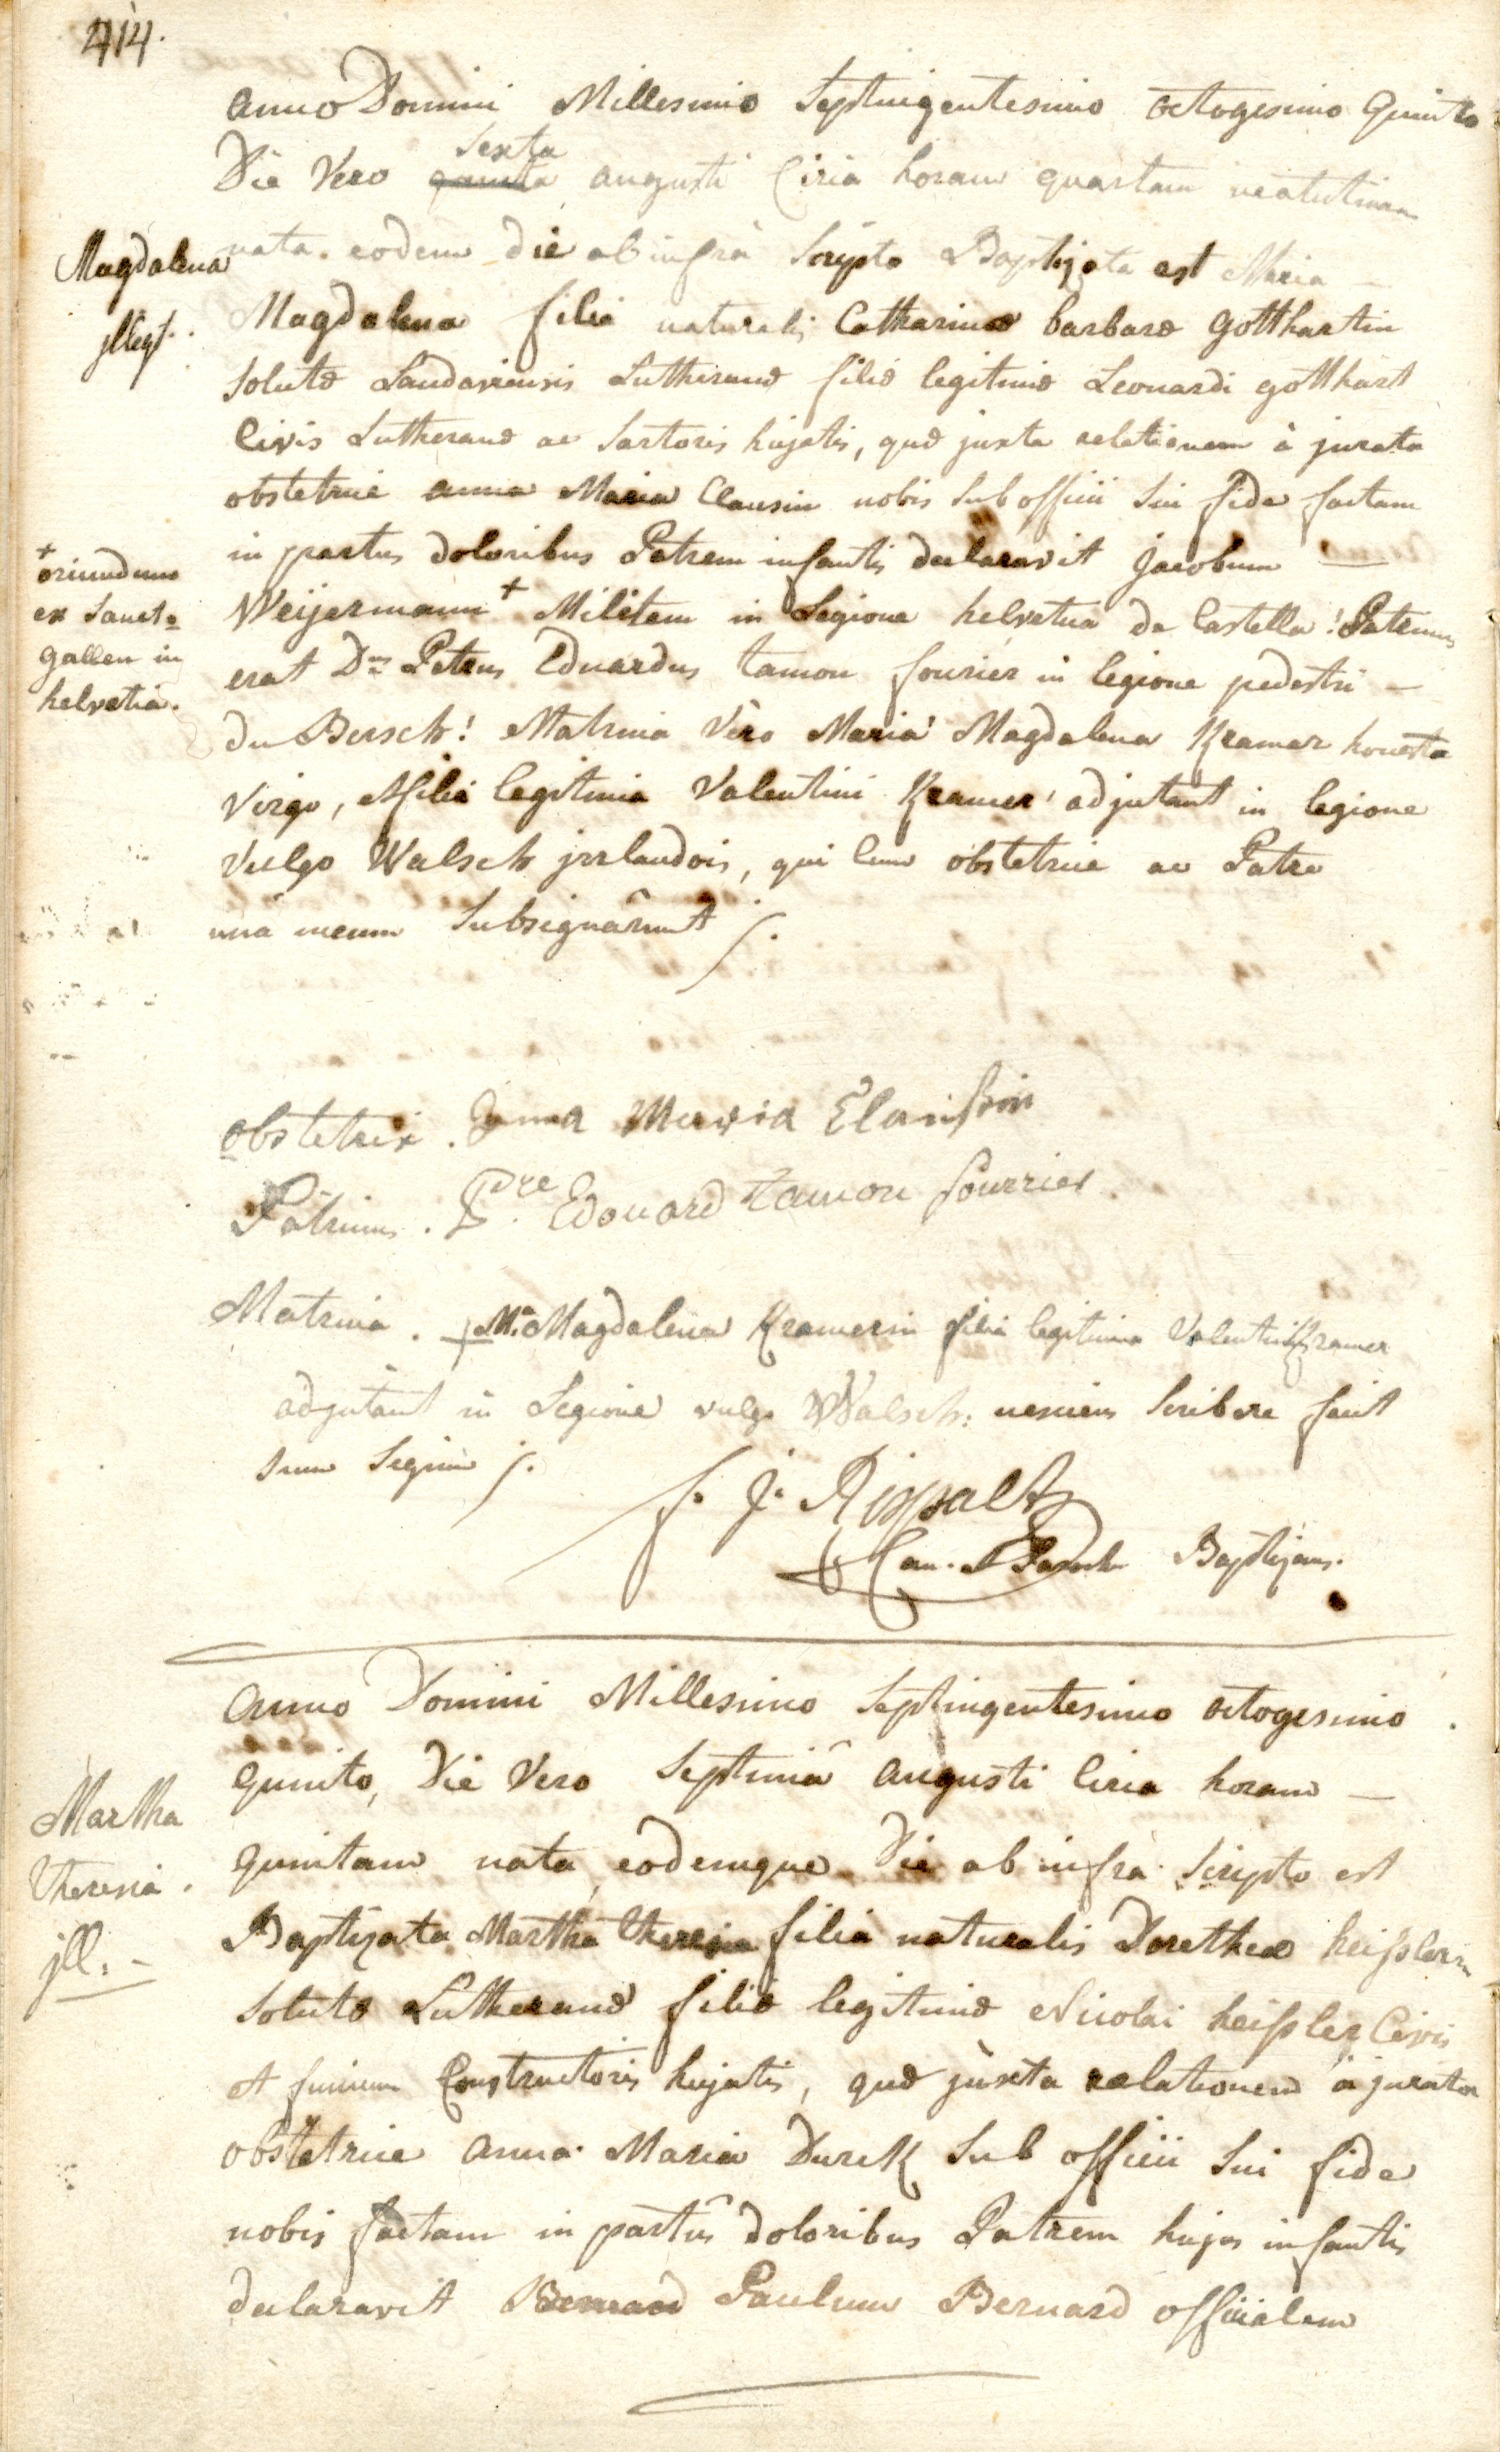 414.
Anno Domini Millesimo Septingentesimo octogesimo Quinto
Die Vero quinta Sexta augusti Circa horam quartam matutinam
nata. eodem die ab infra Scripto Baptizata est Maria –
Magdalena
illegt.
Magdalena filia naturalis Catharinæ barbaræ Gotthartin
Solutæ Landaviensis Lutheranæ filiæ legitimæ Leonardi gotthart
Civis Lutherani ac Sartoris hujatis, quæ juxta relationem à jurata
obstetrice anna Maria Clausin nobis Sub officii Sui fide factam
in partus doloribus Patrem infantis declaravit jacobum —
Weijermann + Militem in Legione helvetica de Castella! Patrinus
+ oriundum
ex Sanct=
gallen in
helvetia.
erat Dns Petrus Eduardus tamon fourier in legione pedestri –
du Bersch! Matrina Vero Maria Magdalena Kramer honesta
Virgo, filia legitima Valentini Kramer adjutant in legione
Vulgo Walsch jrrlandois, qui Cum obstetrice ac Patre
unà mecum Subsignârunt /.
obstetrix. Anna Maria Clausin
Patrinus. Pre Edouard Tamon fourrier
Matrina. + Ma Magdalena Kramerin filia legitima Valentini Kramer
adjutant in Legione vulgo Walsch: nesciens Scribere fecit
Suum Signum /.
f. j. Rispalt
Can. & Paroch Baptizans.
Anno Domini Millesimo Septingentesimo octogesimo
Quinto, Die Vero Septimâ Augusti Circa horam —
Martha
Theresia.
jll. –
Quintam nata, eodemque Die ab infra Scripto est
Baptizata Martha Theresia filia naturalis Dorotheæ heißlerin
Solutæ Lutheranæ filiæ legitimæ Nicolai heißler Civis
et funium Constructoris hujatis, quæ juxta relationem à jurata
obstetrice anna Maria Durck Sub officii Sui fide
nobis factam in partûs doloribus Patrem hujus infantis
declaravit Bernard Paulum Bernard officialem